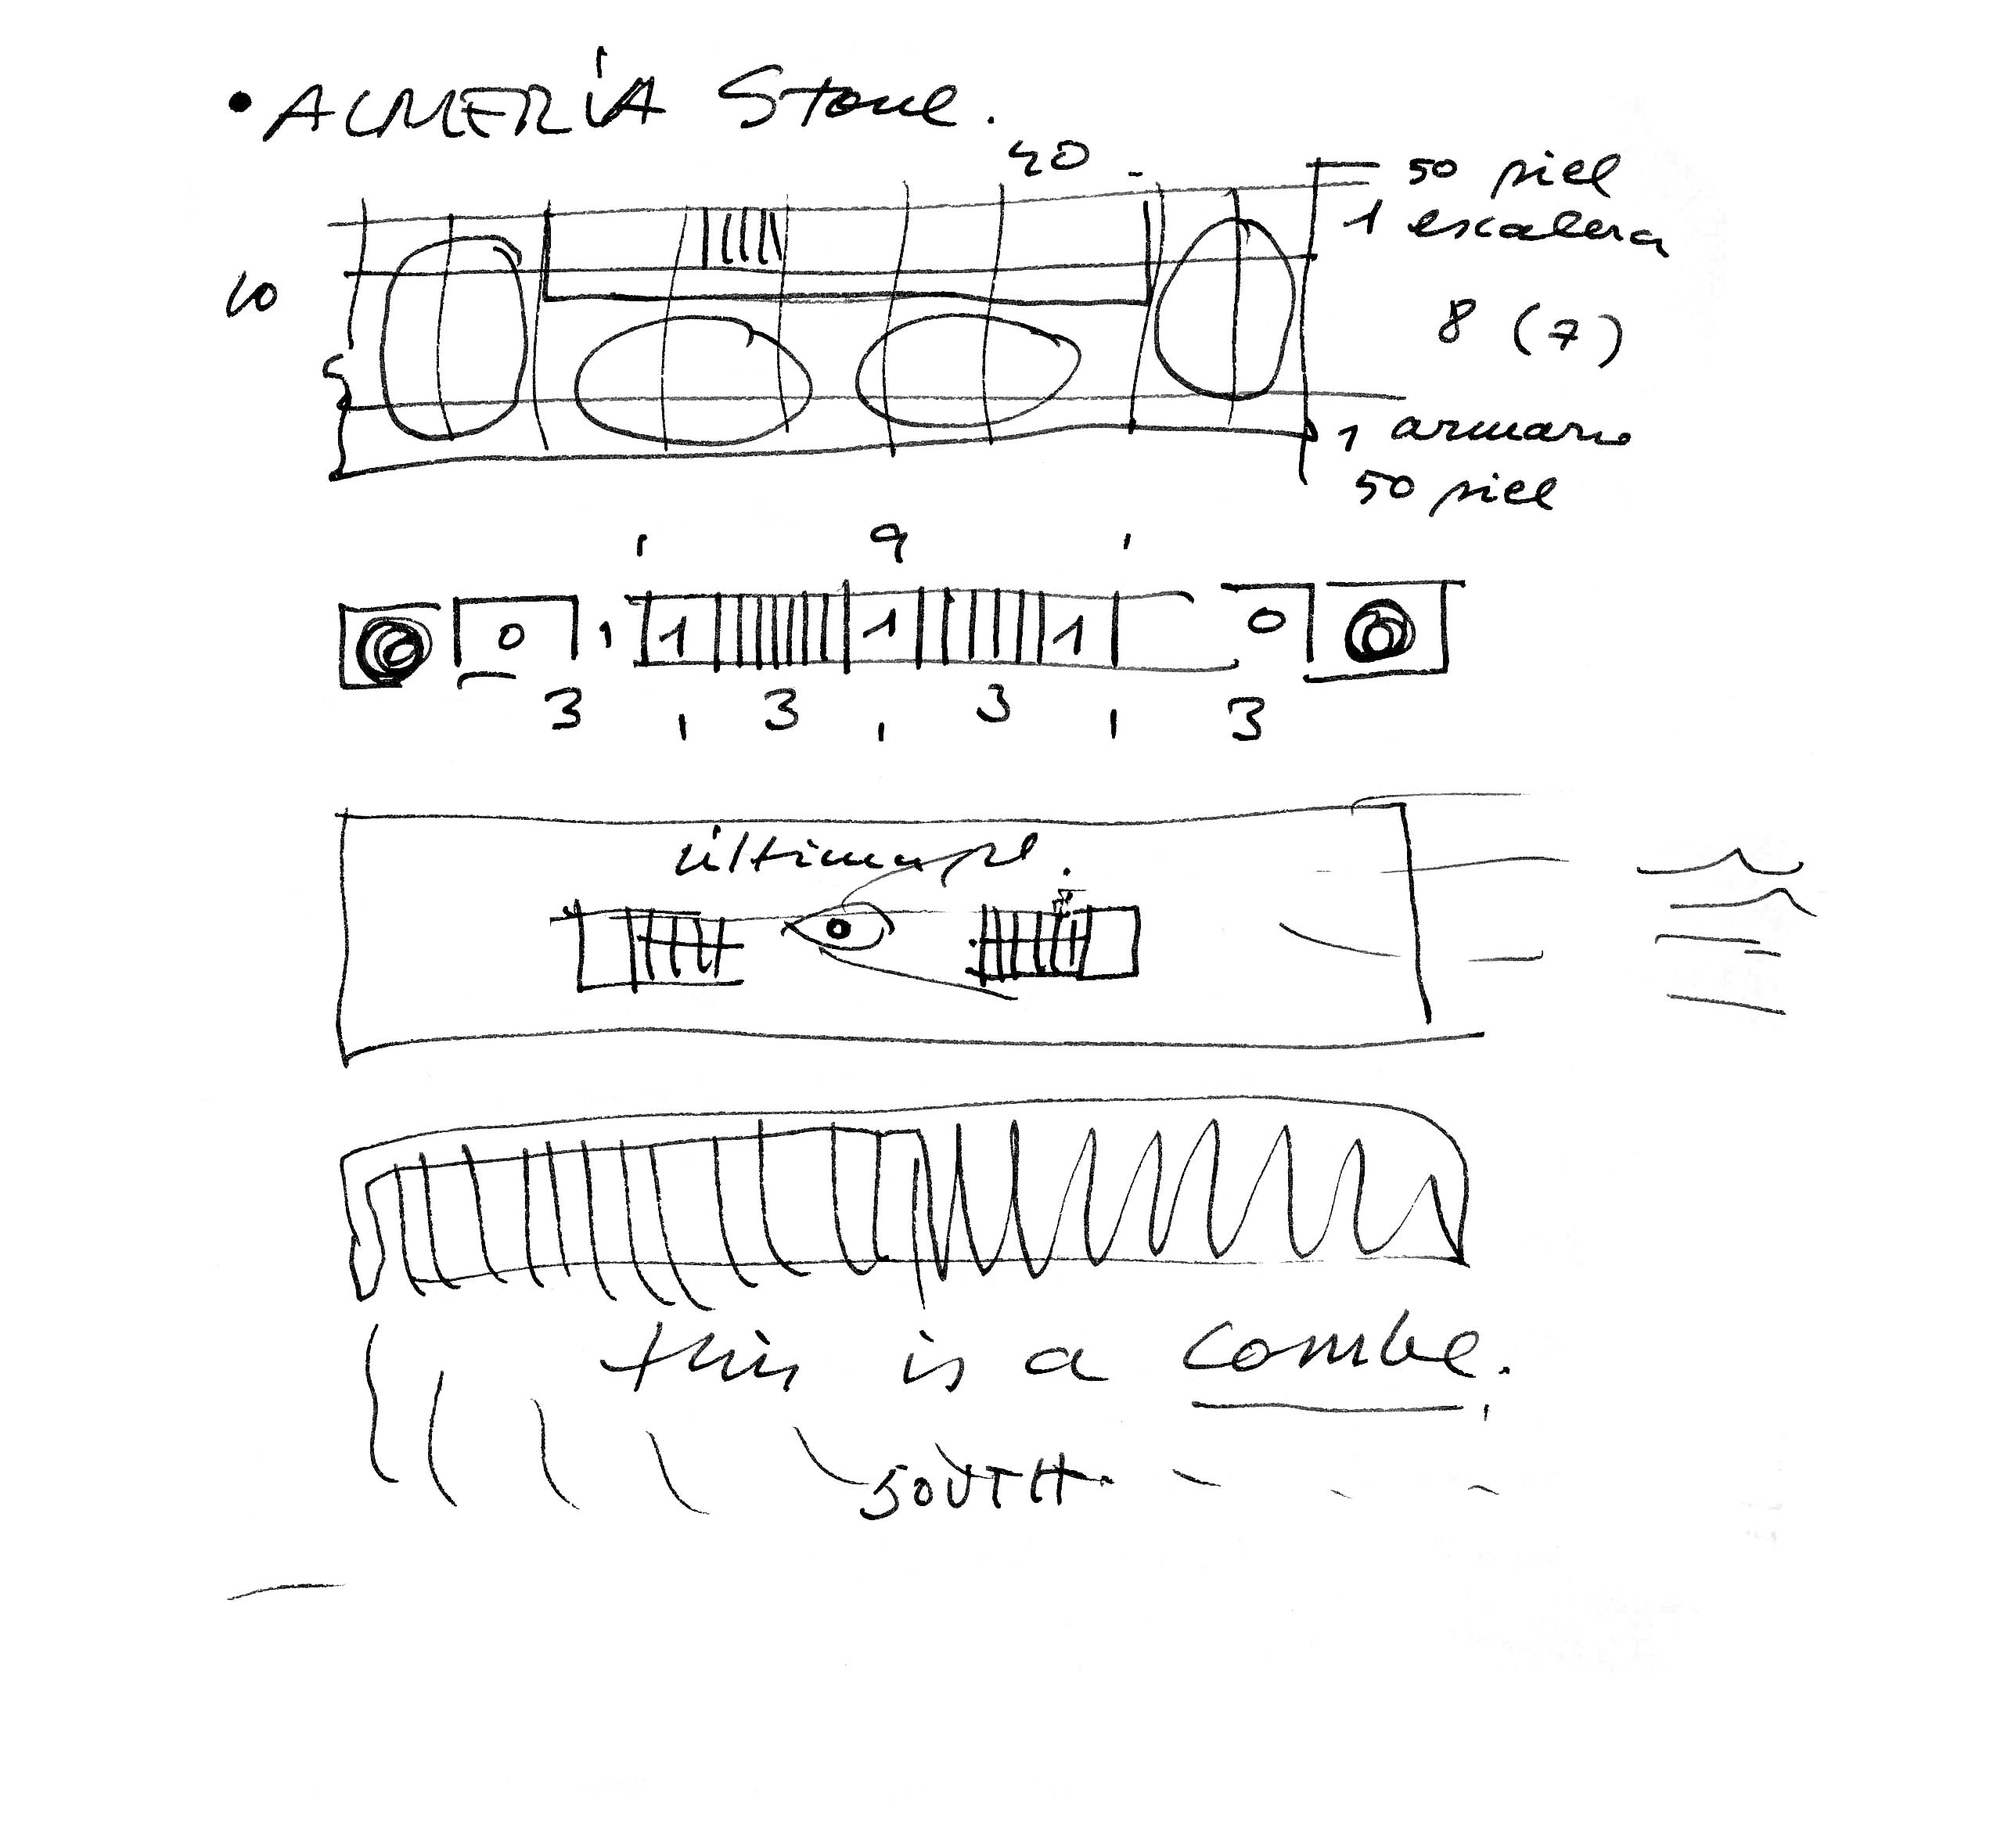 • ALMERÍA Stone.
40
50 piel
1 escalera
10
8 (7)
1 armario
50 piel
9
0 1 1 1 0
3 3 3 3
última pl.
this is a combe.
SOUTH